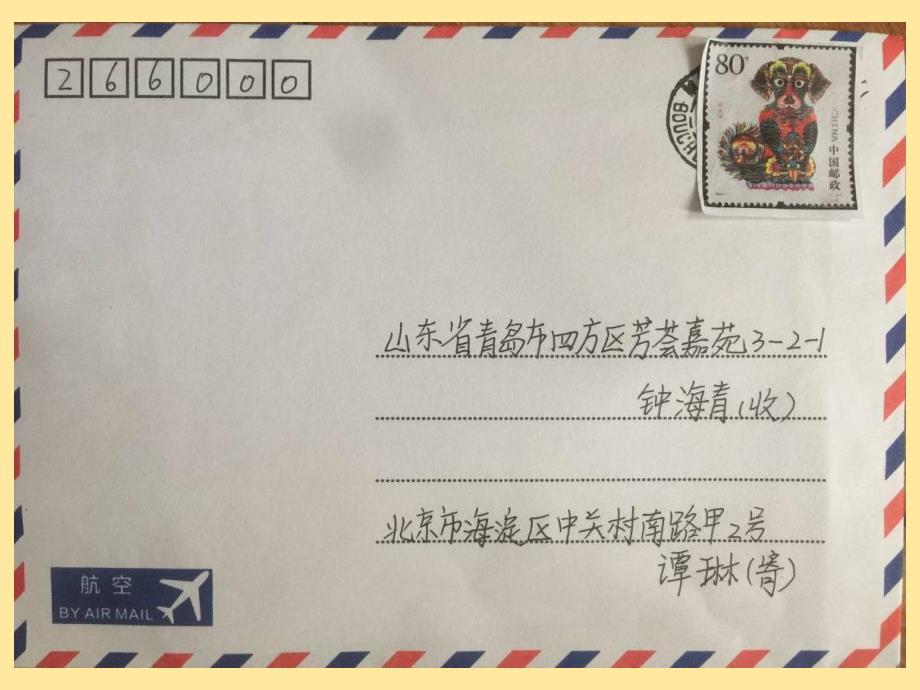 266000
80分
CHINA 中国邮政
山东省青岛市四方区芳荟嘉苑3-2-1
钟海青(收)
北京市海淀区中关村南路甲2号
谭琳(寄)
航空
BY AIR MAIL